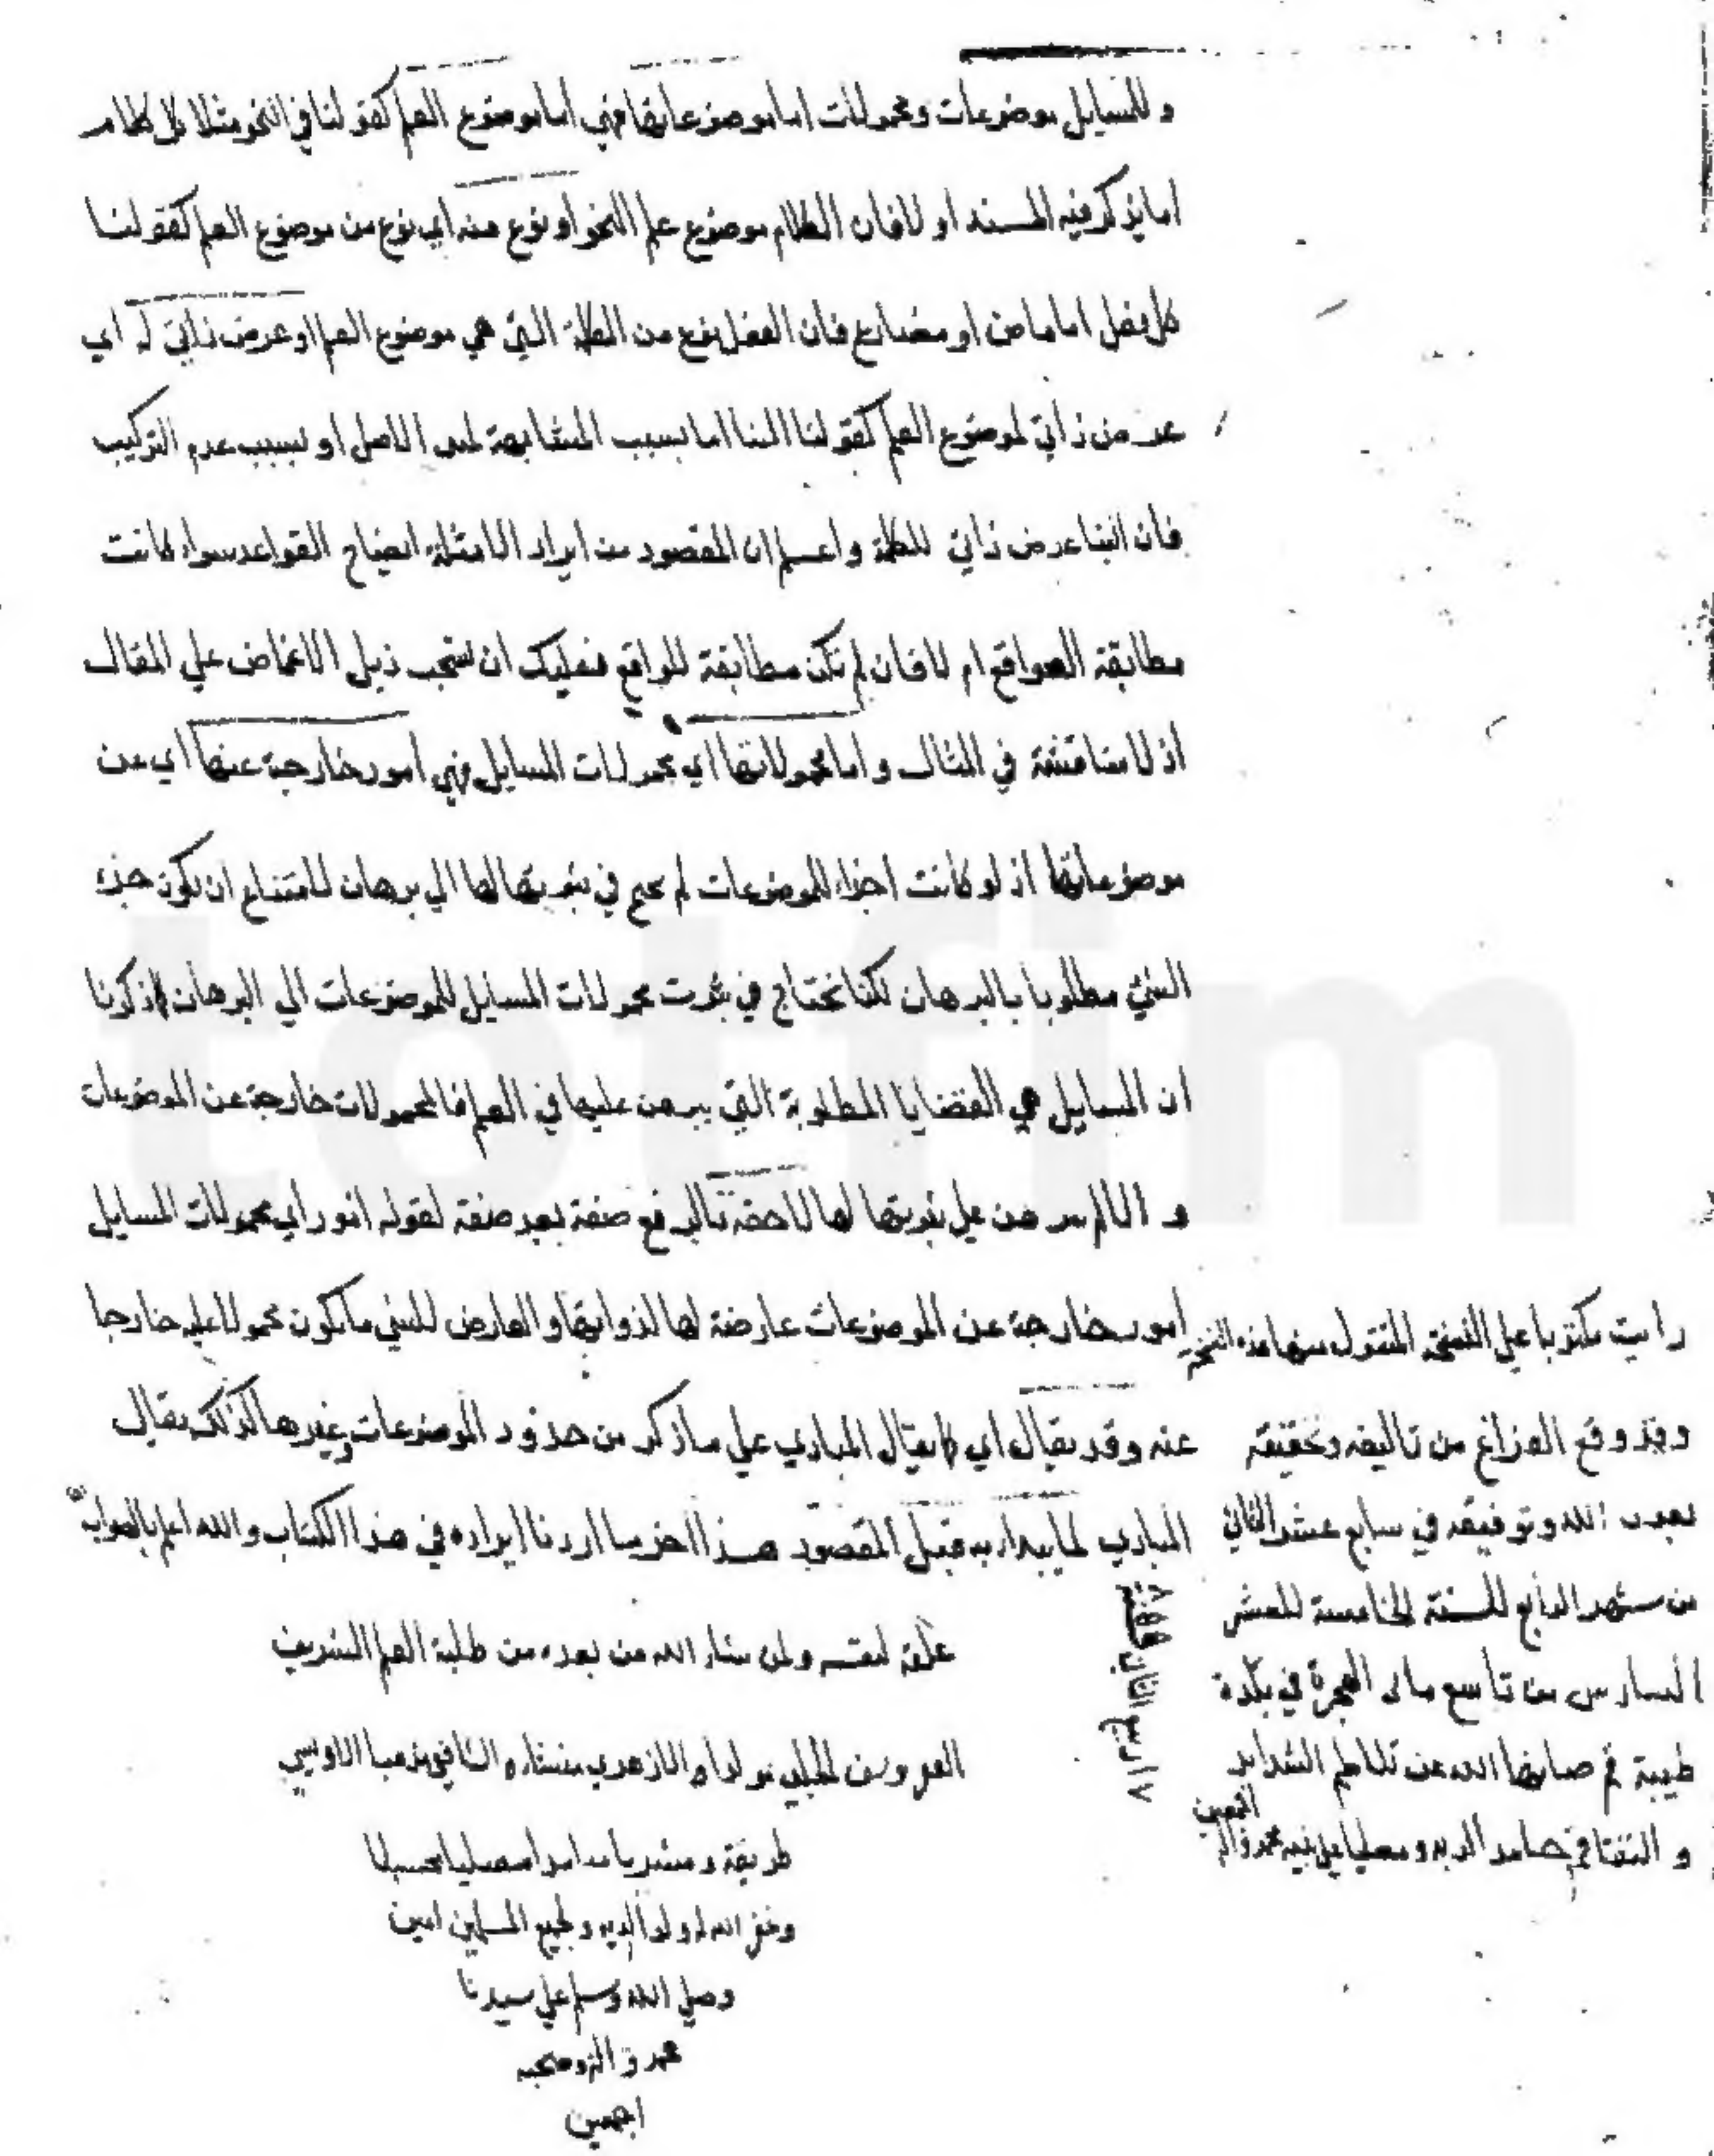 وللمسايل موضوعات ومحمولات اما موضوعاتها فهي اما موضوع العلم كقولنا في النحو مثلا كل كلام
اما يذكر فيه المسند او لا فان الكلام موضوع علم النحو او نوع منه اي نوع من موضوع العلم كقولنا
كل فعل اما ماض او مضارع فان الفعل نوع من الكلمة التي هي موضوع العلم او عرض ذاتي له اي
عرض ذاتي لموضوع العلم كقولنا البنا اما بسبب المشابهة لمبنى الاصل او بسبب عدم التركيب
فان البنا عرض ذاتي للكلمة واعلم ان المقصود من ايراد الامثلة ايضاح القواعد سواء كانت
مطابقة للواقع ام لا فان لم تكن مطابقة للواقع فعليك ان تسحب ذيل الاغماض علي المقال
اذ لا مناقشة في المثال واما محمولاتها اي محمولات المسايل فهي امور خارجة عنها اي عن
موضوعاتها اذ لو كانت اجزاء للموضوعات لم يحتج في ثبوتها لها الي برهان لامتناع ان يكون جزء
الشي مطلوبا بالبرهان لكنا نحتاج في ثبوت محمولات المسايل للموضوعات الي البرهان لما ذكرنا
ان المسايل هي القضايا المطلوبة التي يبرهن عليها في العلم فالمحمولات خارجة عن الموضوعات
والا لم يبرهن علي ثبوتها لها لاحقة بالرفع صفة بعد صفة لقوله امور اي محمولات المسايل
امور خارجة عن الموضوعات عارضة لها لذواتها والعارض للشي ما يكون محمولا عليه خارجا
عنه وقد يقال اي كما يقال المبادي علي ما ذكر من حدود الموضوعات وغيرها كذلك يقال
المبادي لما يبدا به قبل المقصود هذا اخر ما اردنا ايراده في هذا الكتاب والله اعلم بالصواب
رايت مكتوبا علي النسخة المنقول منها هذه النسخة
وقد وقع الفراغ من تاليفه وتحقيقه
بعون الله وتوفيقه في سابع عشر الثاني
من شهر الرابع للسنة الخامسة للعشر
السادس من تاسع ماية الهجرة في بلدة
طيبة قم صانها الله عن تلاطم الشدايد
و حامدا لله ومصليا علي نبيه محمد واله
اجمعين
علقه لنفسه ولمن شاء الله من بعده من طلبة العلم الشريف
مولدا والازهري منشا والشافعي مذهبا الاويسي
طريقة ومشربا حامدا مصليا محسبلا
وغفر الله له ولوالديه ولجميع المسلمين امين
وصلي الله وسلم علي سيدنا
محمد واله وصحبه
اجمعين